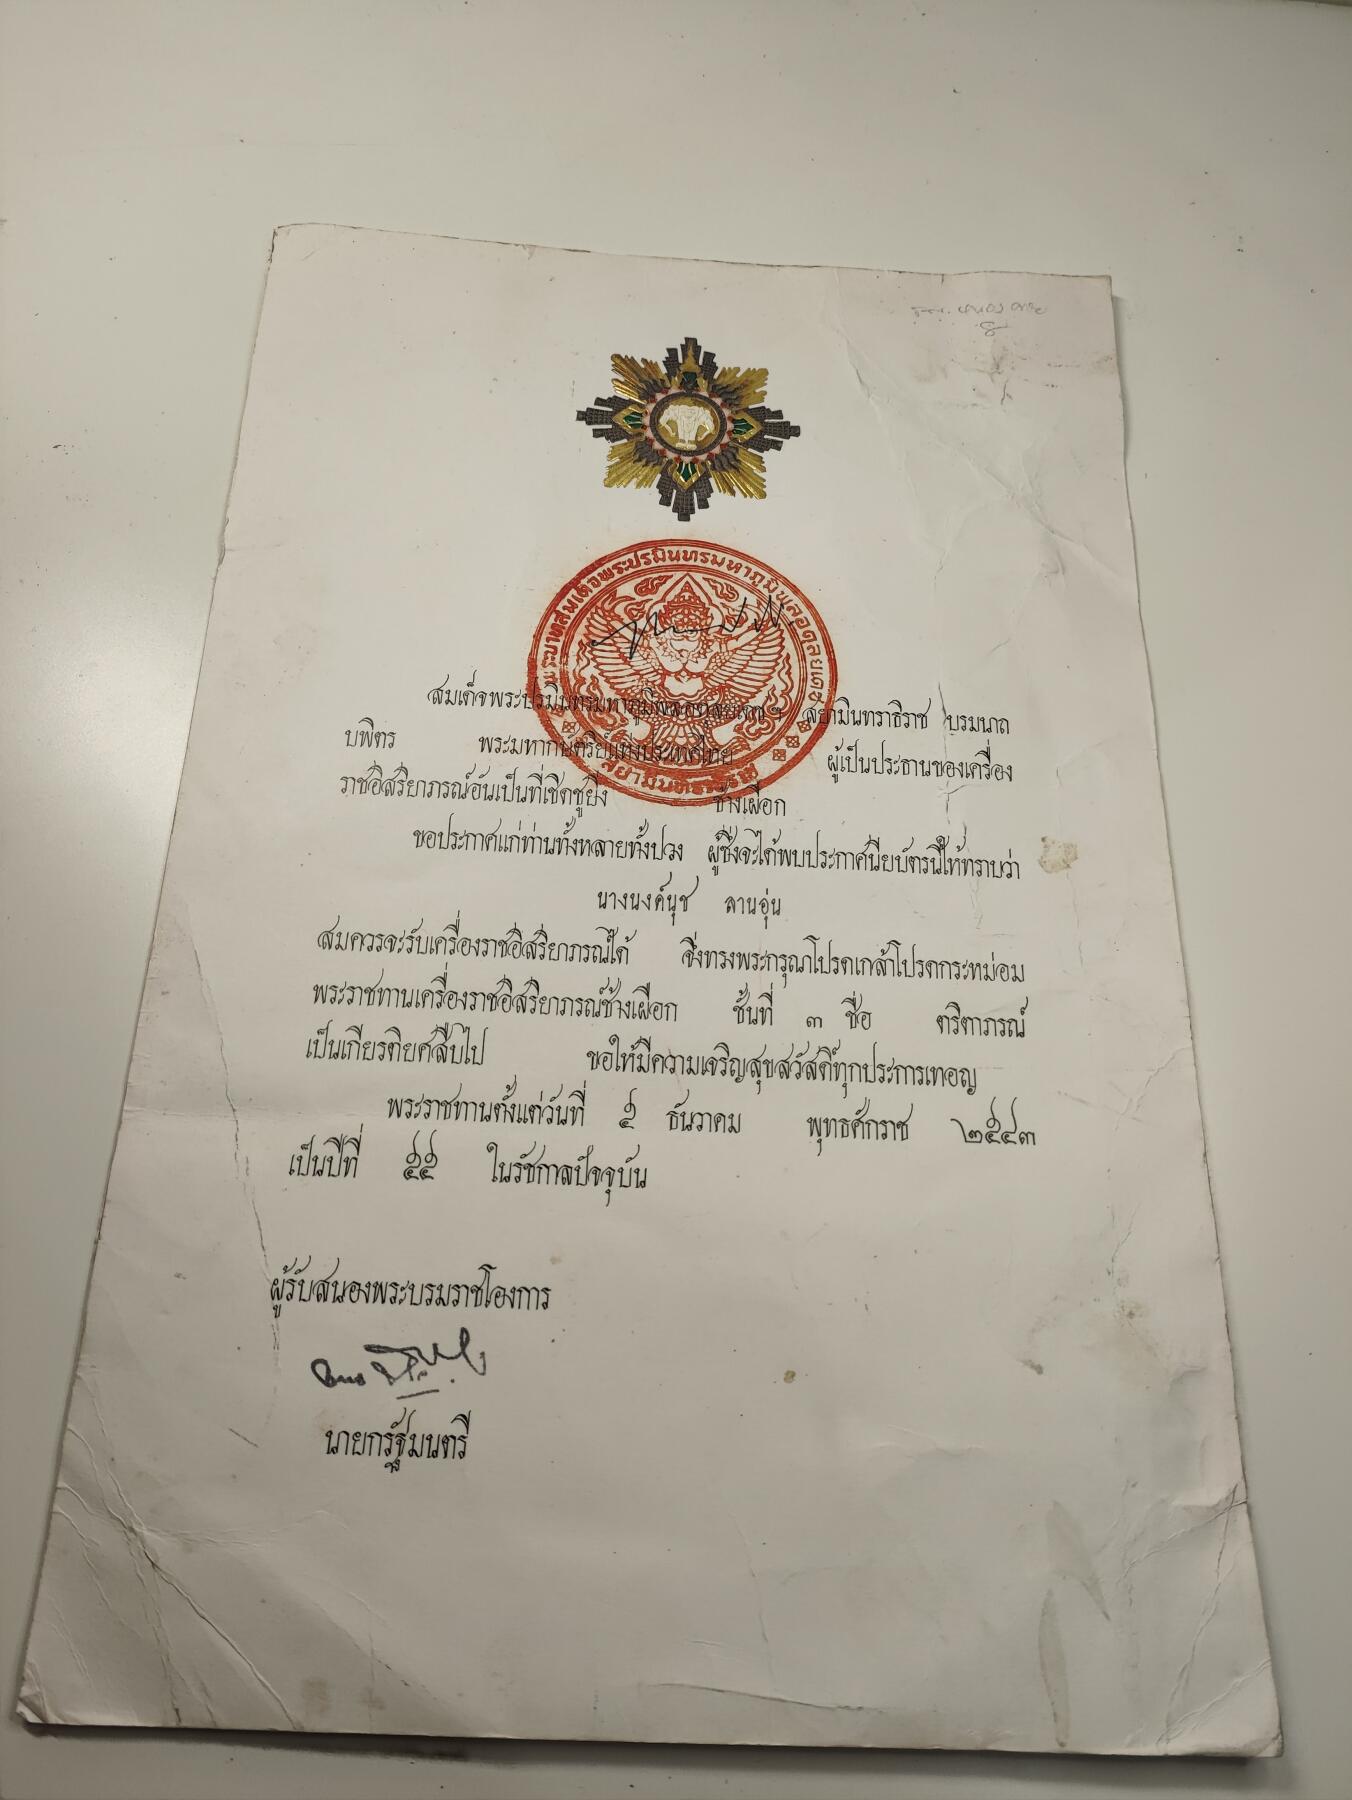 พระบาทสมเด็จพระปรมินทรมหาภูมิพลอดุลยเดช
สยามินทราธิราช
สมเด็จพระปรมินทรมหาภูมิพลอดุลยเดช ฯ สยามินทราธิราช บรมนาถ
บพิตร พระมหากษัตริย์แห่งประเทศไทย ผู้เป็นประธานของเครื่อง
ราชอิสริยาภรณ์อันเป็นที่เชิดชูยิ่ง ช้างเผือก
ขอประกาศแก่ท่านทั้งหลายทั้งปวง ผู้ซึ่งจะได้พบประกาศนียบัตรนี้ให้ทราบว่า
นางนงค์นุช ลานอุ่น
สมควรจะรับเครื่องราชอิสริยาภรณ์ได้ จึ่งทรงพระกรุณาโปรดเกล้าโปรดกระหม่อม
พระราชทานเครื่องราชอิสริยาภรณ์ช้างเผือก ชั้นที่ ๓ ชื่อ ตริตาภรณ์
เป็นเกียรติยศสืบไป ขอให้มีความเจริญสุขสวัสดิ์ทุกประการเทอญ
พระราชทานตั้งแต่วันที่ ๕ ธันวาคม พุทธศักราช ๒๕๔๓
เป็นปีที่ ๕๕ ในรัชกาลปัจจุบัน
ผู้รับสนองพระบรมราชโองการ
นายกรัฐมนตรี